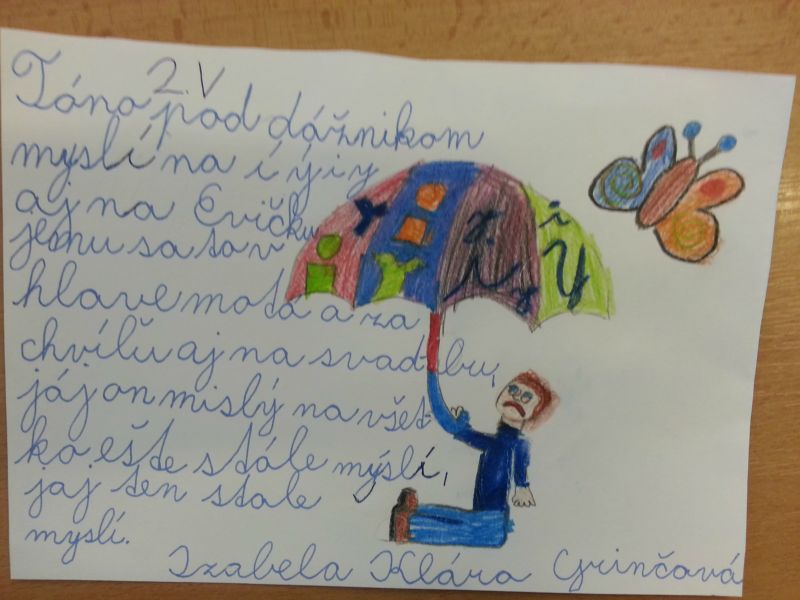 2. V
Tóno pod dážnikom
myslí na i ý i y
aj na Evičku
jemu sa to v
hlave motá a za
chvíľu aj na svadbu,
jáj on mislý na všet
ko ešte stále mýslí,
jaj ten stale
myslí.
Izabela Klára Grinčová
i y i
i y